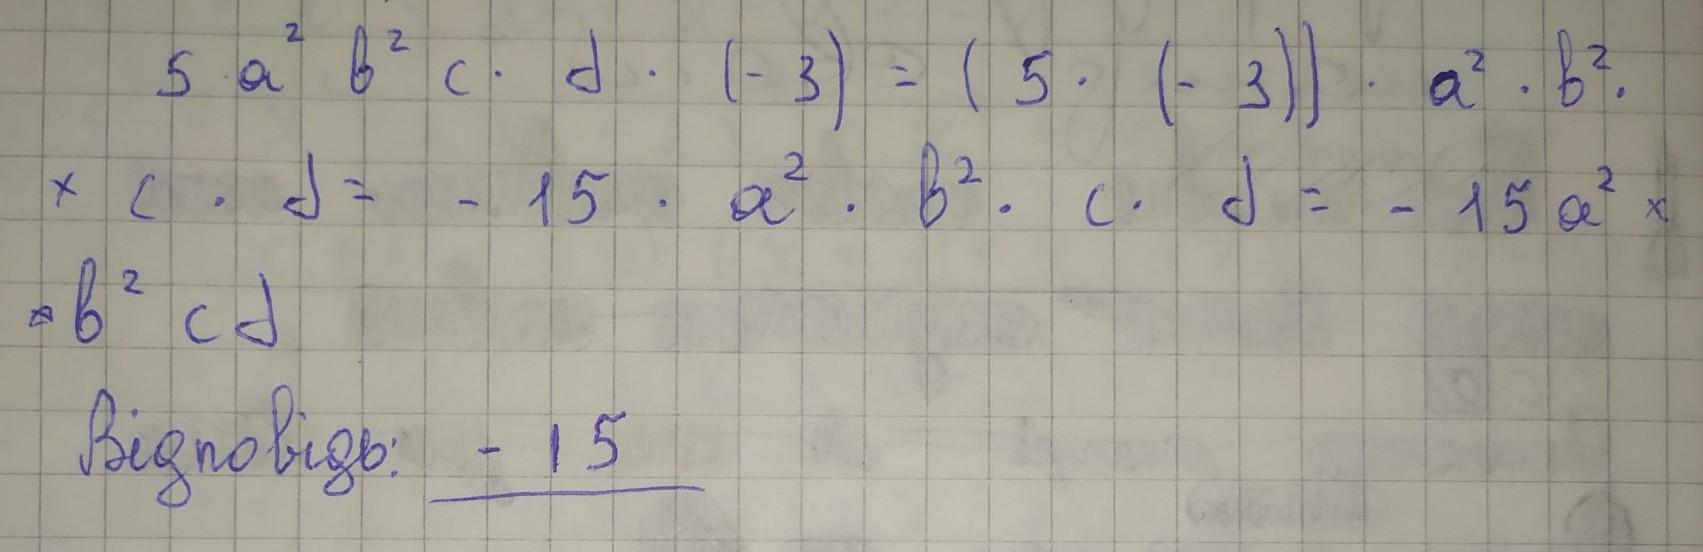 5 a² b² c · d · (-3) = (5 · (-3)) · a² · b² ·
× c · d = - 15 · a² · b² · c · d = - 15 a² ×
× b² c d
Відповідь: - 15